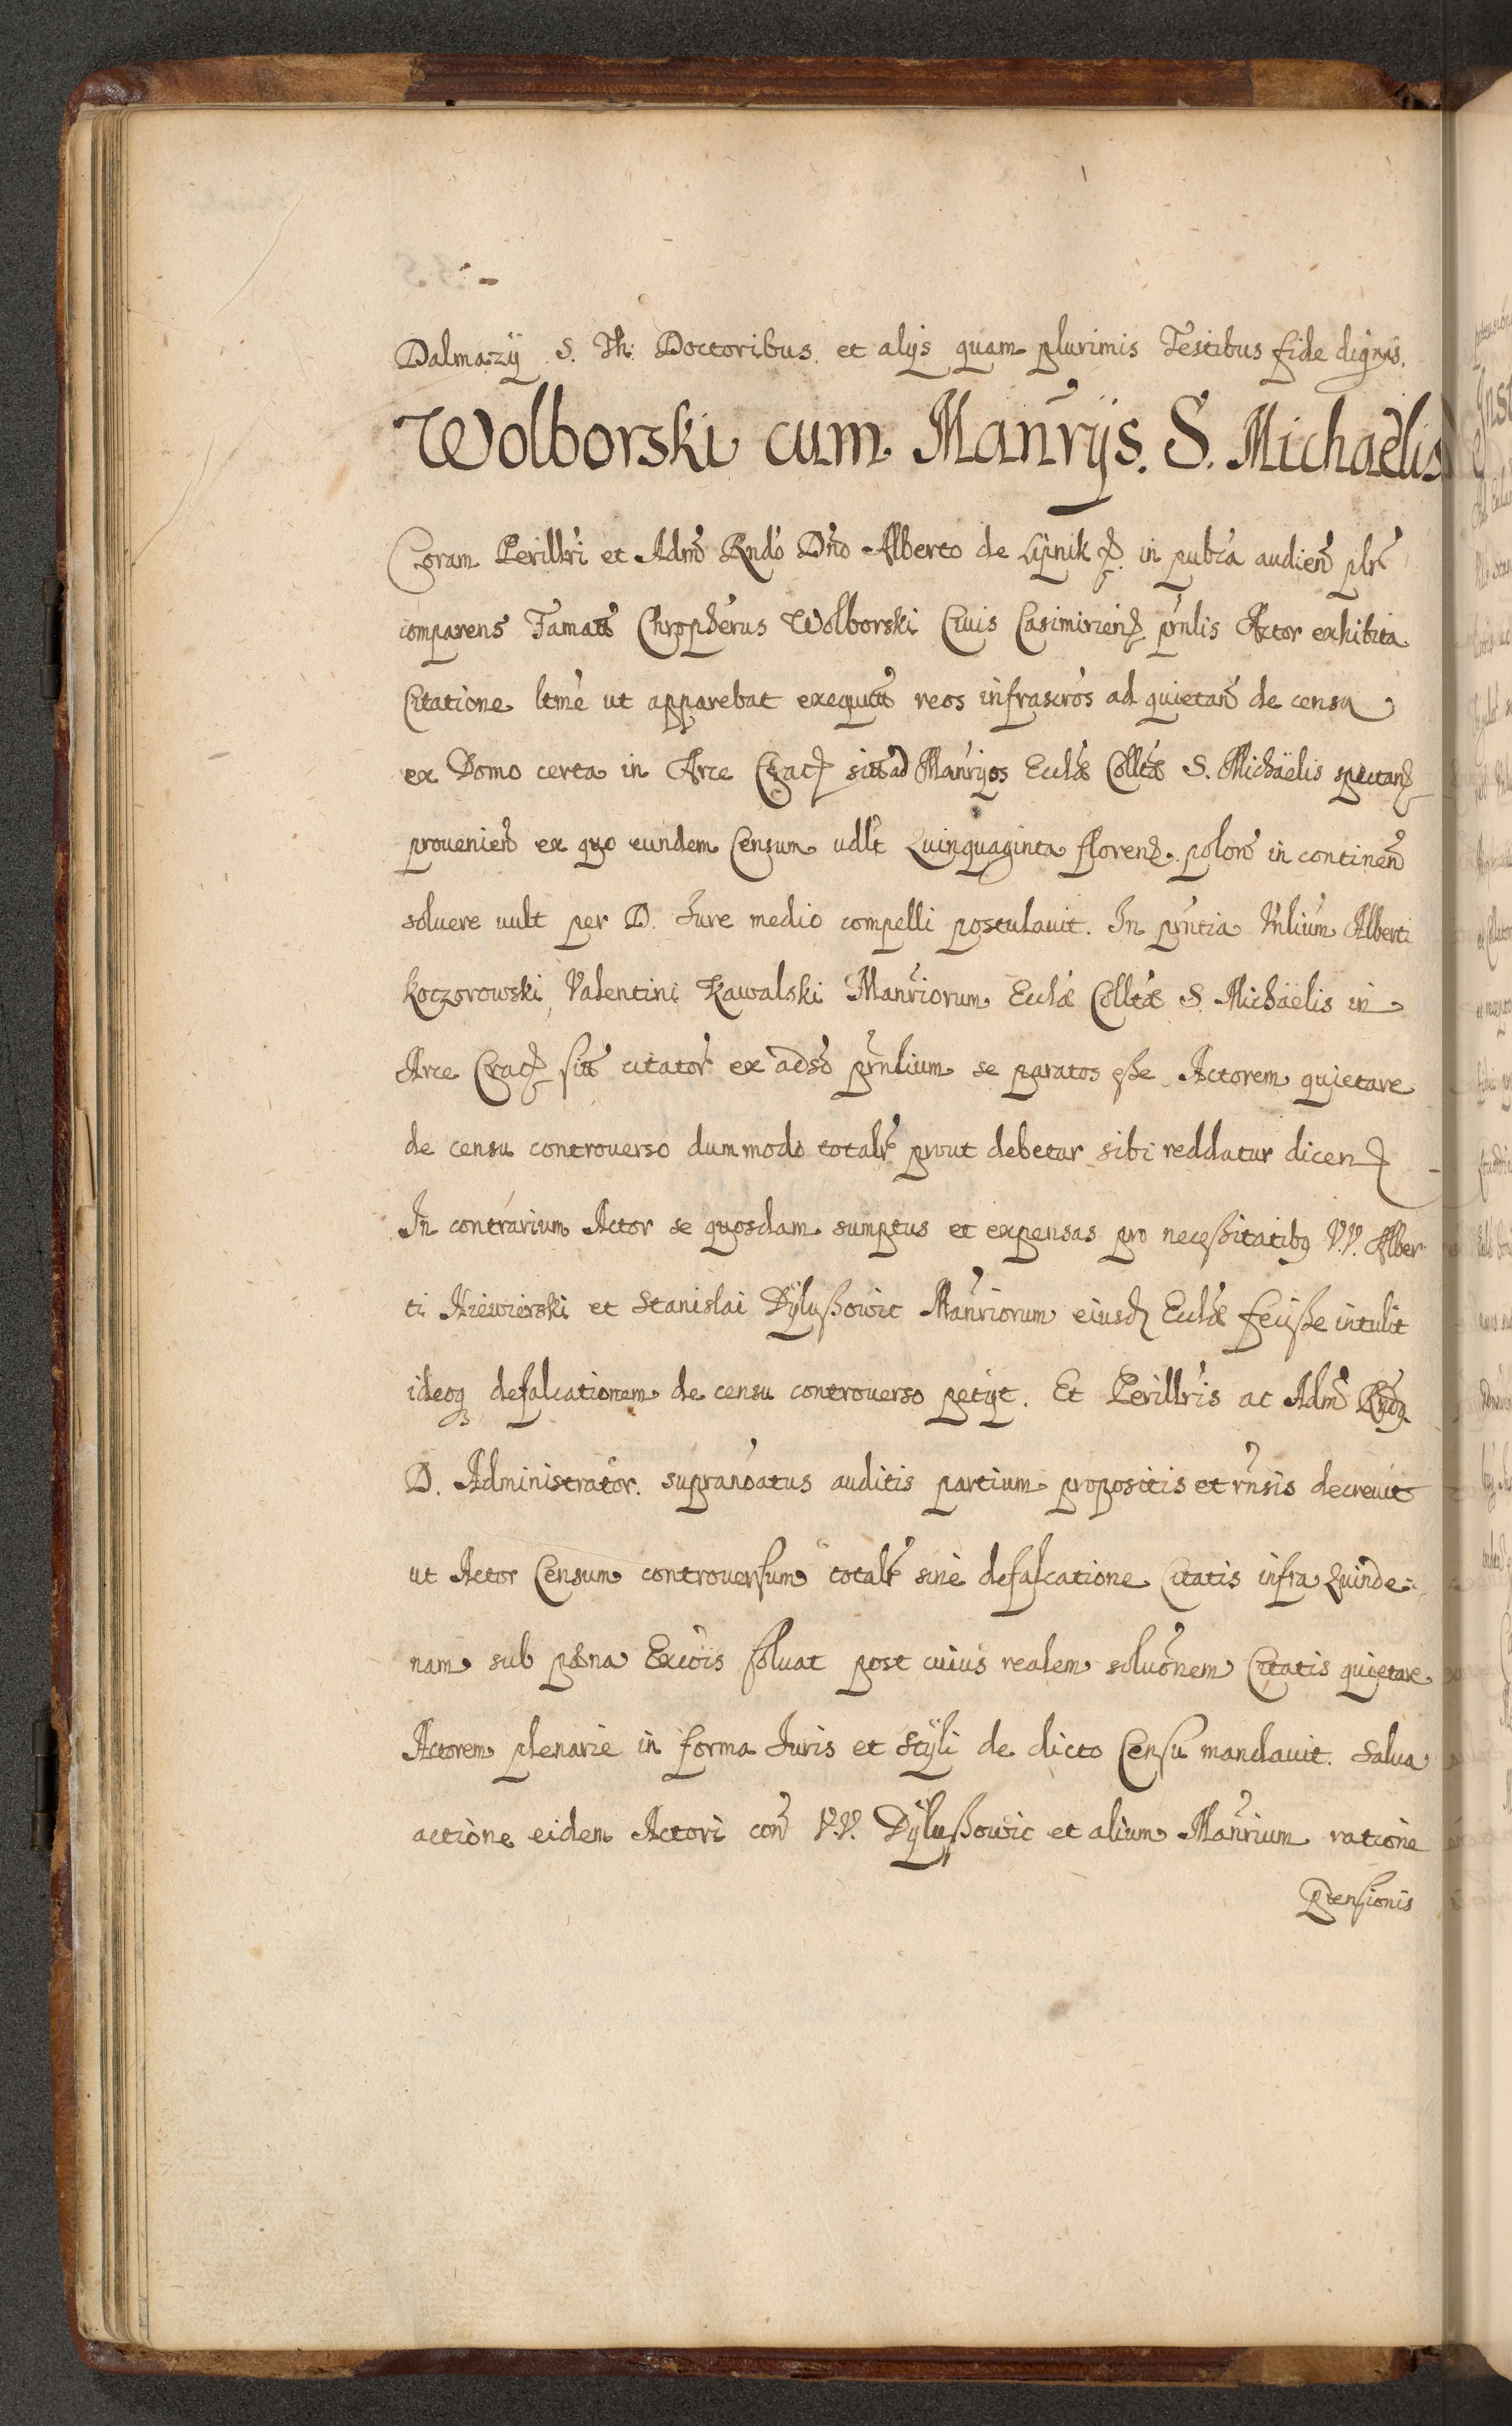 Dalmazÿ S. Th: Doctoribus et alÿs quam plurimis Testibus fide dignis.
Wolborski cum Man̄rÿs. S. Michaëlis
Coram Perillri et Adm̄ Rndo Dn̄o Alberto de Lipnik in pub̄ca audien̄ plr̄
comparens Famat̄ Chrōpherus Wolborski Ciuis Casimirien̄ prn̄lis Actor exhibita
Citatione ltm̄e ut apparebat exequut̄ reos infrascrōs ad quietan̄ de censu
ex Domo certa in Arce Crac̄ sit̄ ad Man̄rÿos Eccl̄æ Collt̄æ S. Michaëlis spectan̄
prouenien̄ ex quo eundem Censum vdlt̄ Quinquaginta floren̄. polon̄ in continen̄
soluere vult per D. Jure medio compelli postulauit. In prn̄tia Vnliūm Alberti
Koczorowski, Valentini Kawalski Man̄riorum Eccl̄æ Collt̄æ S. Michaëlis in
Arce Crac̄ sit̄ citator̄ ex adsō prn̄lium se paratos eße Actorem quietare
de censu controuerso dummodo totalr̄ prout debetur sibi reddatur dicen̄
In contrarium Actor se quosdam sumptus et expensas pro neceßitatibꝫ V.V. Alber
ti Niewierski et Stanislai Dÿlußowic Man̄riorum eiusd̄ Eccl̄æ feciße intulit
ideoqꝫ defalcationem de censu controuerso petÿt. Et Perillris ac Adm̄ Rn̄dꝫ
D. Administrator. supranōatus auditis partium propositis et rn̄sis decreuit
ut Actor Censum controuersum totalr̄ sine defalcatione Citatis infra Quinde=
nam sub pæna Excōis soluat post cuius realem soluōnem Citatis quietare
Actorem plenarie in forma Juris et Stÿli de dicto Censu mandauit. Salua
actione eidem Actori con̄ V.V. Dÿlußowic et alium Man̄rium ratione
p̄tensionis